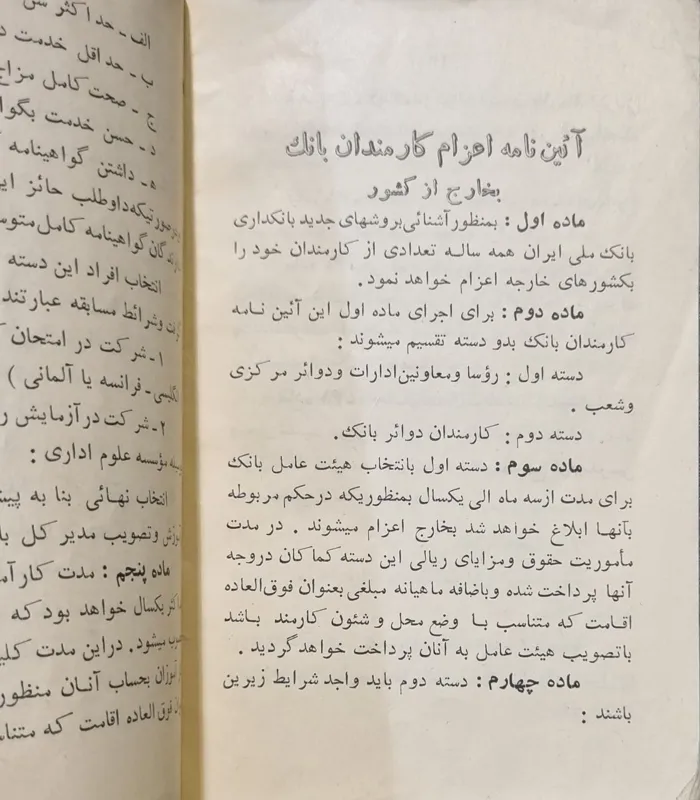 آئین نامه اعزام کارمندان بانك
بخارج از کشور
ماده اول : بمنظور آشنائی بروشهای جدید بانکداری
بانك ملی ایران همه ساله تعدادی از کارمندان خود را
بکشورهای خارجه اعزام خواهد نمود .
ماده دوم : برای اجرای ماده اول این آئین نامه
کارمندان بانك بدو دسته تقسیم میشوند :
دسته اول : رؤسا ومعاونین ادارات ودوائر مرکزی
وشعب .
دسته دوم : کارمندان دوائر بانك .
ماده سوم : دسته اول بانتخاب هیئت عامل بانك
برای مدت ازسه ماه الی یکسال بمنظوریکه درحکم مربوطه
بآنها ابلاغ خواهد شد بخارج اعزام میشوند . در مدت
مأموریت حقوق ومزایای ریالی این دسته کماکان دروجه
آنها پرداخت شده وباضافه ماهیانه مبلغی بعنوان فوق‌العاده
اقامت که متناسب با وضع محل و شئون کارمند باشد
باتصویب هیئت عامل به آنان پرداخت خواهد گردید .
ماده چهارم : دسته دوم باید واجد شرایط زیرین
باشند :
الف - حداکثر سن
ب - حداقل خدمت
ج - صحت کامل مزاج
د - حسن خدمت
ه - داشتن گواهینامه
داوطلب حائز
گواهینامه کامل
انتخاب افراد این دسته
وشرائط مسابقه عبارتند
۱- شرکت در امتحان
انگلیسی - فرانسه یا آلمانی )
۲- شرکت در آزمایش
مؤسسه علوم اداری :
انتخاب نهائی بنا به
وتصویب مدیر کل
ماده پنجم : مدت
یکسال خواهد بود که
میشود . دراین مدت
بحساب آنان منظور
فوق العاده اقامت که